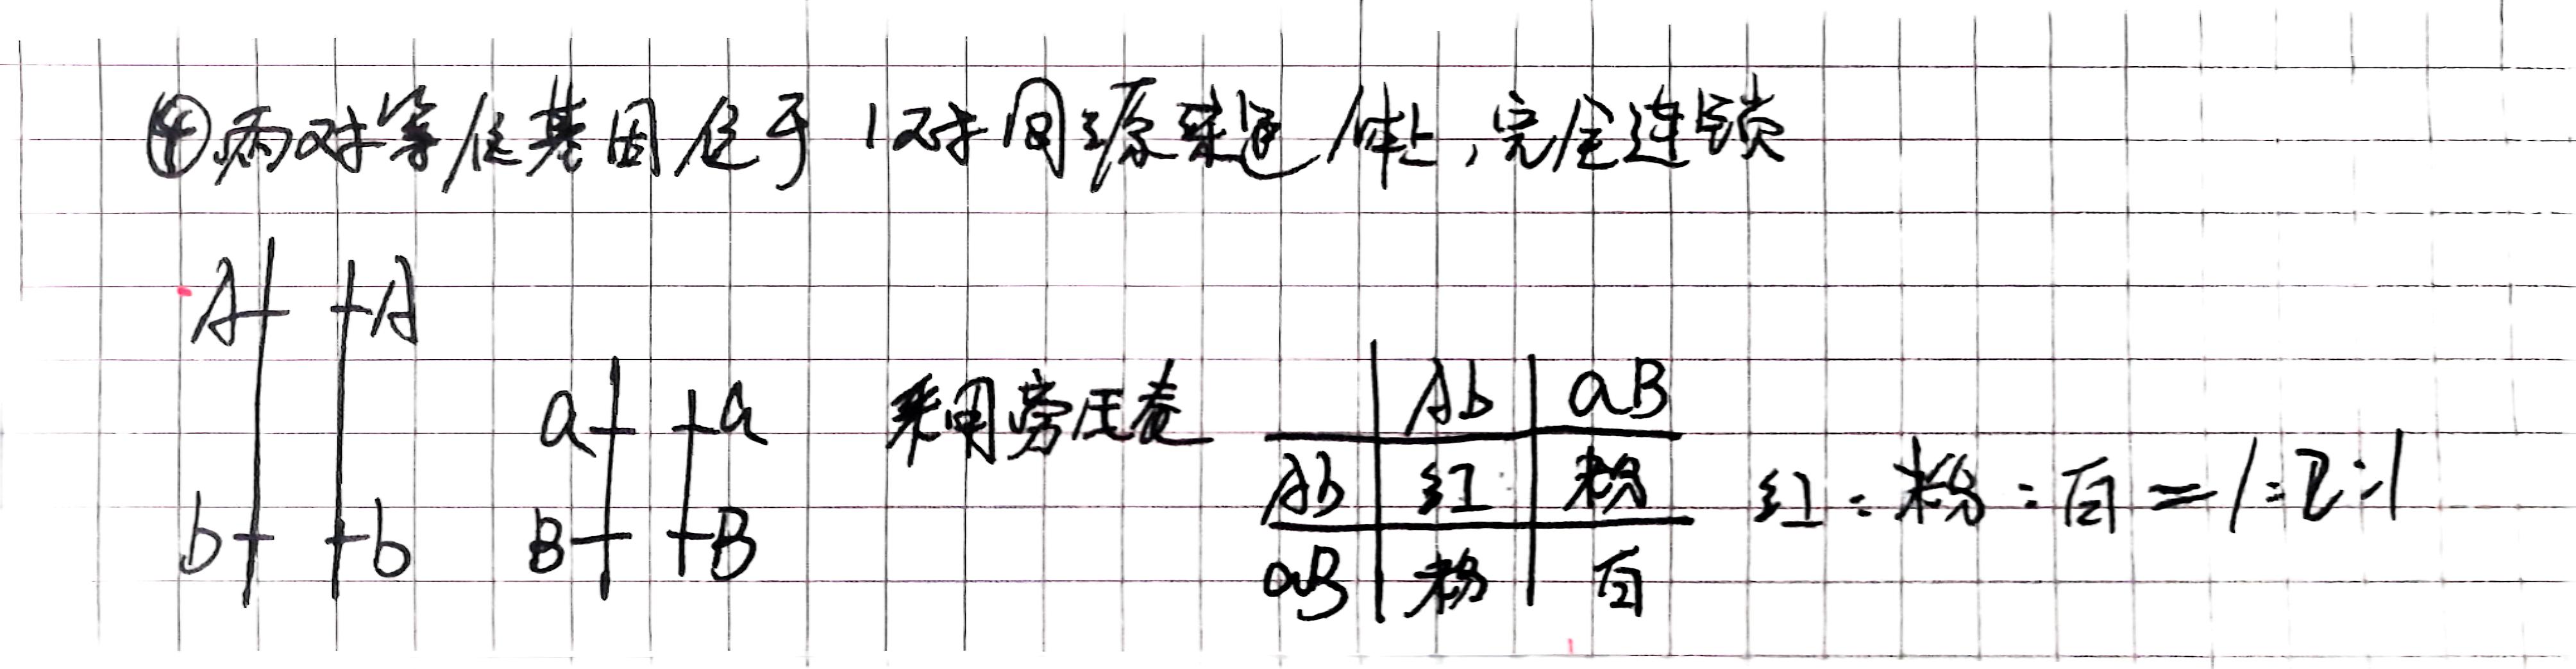 ④两对等位基因位于1对同源染色体上,完全连锁
A A
a a 采用旁氏表 Ab aB
b b B B Ab 红 粉 红:粉:白=1:2:1
aB 粉 白